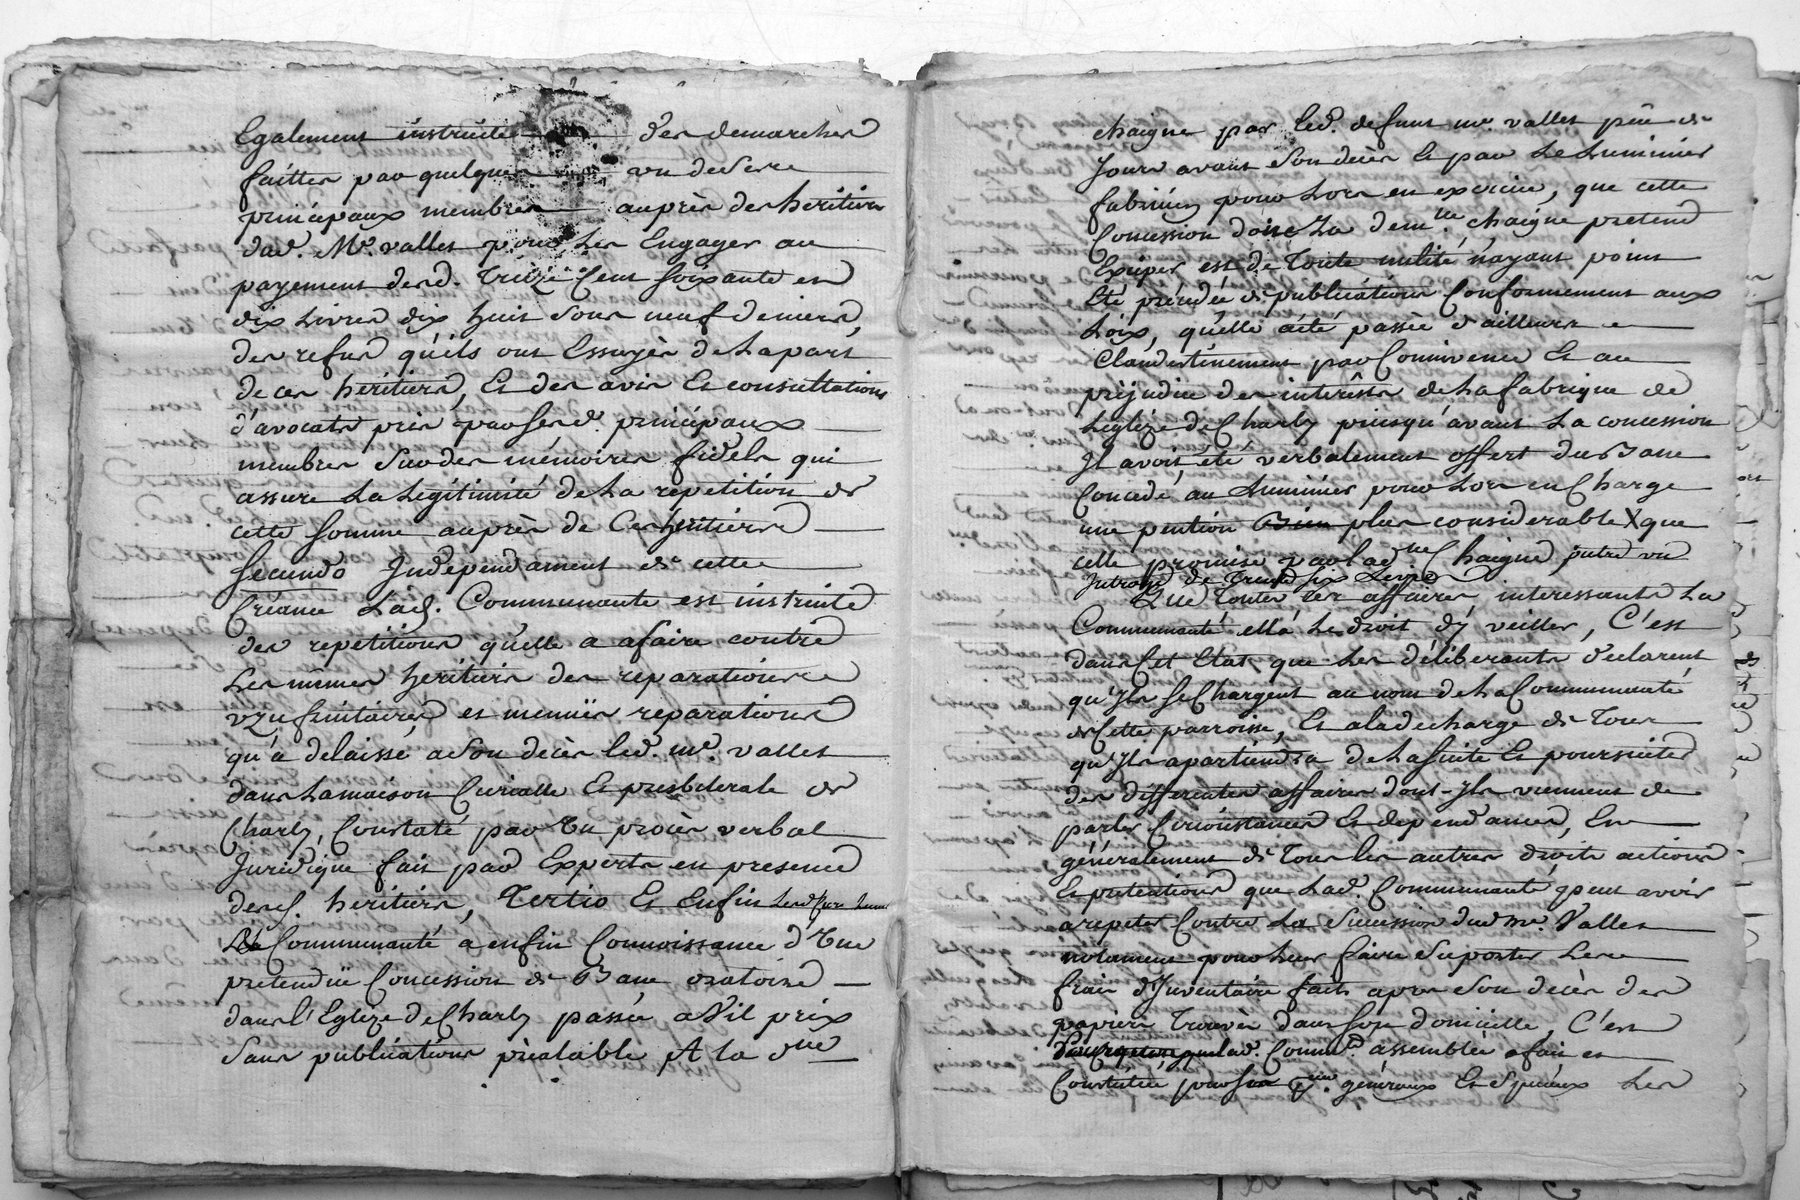 Egalement instruitte des demarches
faittes par quelques uns de ses
principaux membres auprès des heritiers
dud. Mre. valles pour les Engager au
payement desd. Treize Cent soixante et
dix Livres dix huit sous neuf deniers,
des refus qu'éls ont Essuyès de la part
de ces héritiers, Et des avis Et consultations
d'avocats pris par sesd. principaux
membres sur des mémoires fidels qui
assure la Légitimité de La répetition de
cette somme auprès de Ces héritiers
Secundo Indépendament de cette
Créance Lad. Communauté est instruitte
des repetitions qu'elle a afaire contre
Les mêmes heritiers des reparations
uzufruitaires et menuës reparations
qu'a delaissé a son décès led. mre. valles
dans La maison Curialle Et presbiterale de
Charly, Constaté par un procès verbal
Juridique fait par Experts en presence
desd. heritiers, Tertio Et Enfin
La Communauté a enfin Connoissance d'une
pretenduë Concession de Banc oratoire
dans l'Eglèze de Charly passée a Vil prix
sans publications prèalable A la dlle
chaigne par led. defunt mre. valles peu de
Jours avant son décès Et par Le Luminier
fabricien pour Lors en exercice, que cette
Concession dont La demlle. chaigne pretend
Exciper est de Toute nulité n'ayant point
Eté précédée de publications Conformement aux
Loix, qu'elle a été passée d'ailleurs
Clandestinement par Connivence Et au
préjudice des intérêts de La fabrique de
Léglize de Charly puisqu'avant La concession
Il avoit été verbalement offert du Banc
Concédé, au Luminier pour Lors en Charge
une pention Bien plus considerable X que
celle promise par lad. dlle Chaigne outre un
Introge de Trente six Livres
Que Toutes ces affaires interessants La
Communauté ella Le droit d'y veiller, C'est
dans Cet Etat que Les déliberants déclarent
qu'Ils se Chargent au nom de La Communauté
de Cette parroisse, Et a la decharge de Tous
qu'Ils apartiendra de La suite Et poursuites
des differentes affaires dont-Ils viennent de
parler Circonstances Et dependances, Et
généralement de Tous les autres droits actions
Et pretentions que Lad. Communauté peut avoir
a repeter Contre La Succession dud. mre. Valles
notament pour Leur faire suporter Les
frais d'Inventaire fait après son décès des
papiers Trouvès dans son domicille, C'est
que lad. Commté. assemblée a fait et
Constitué, pour ses generaux Et speciaux Les